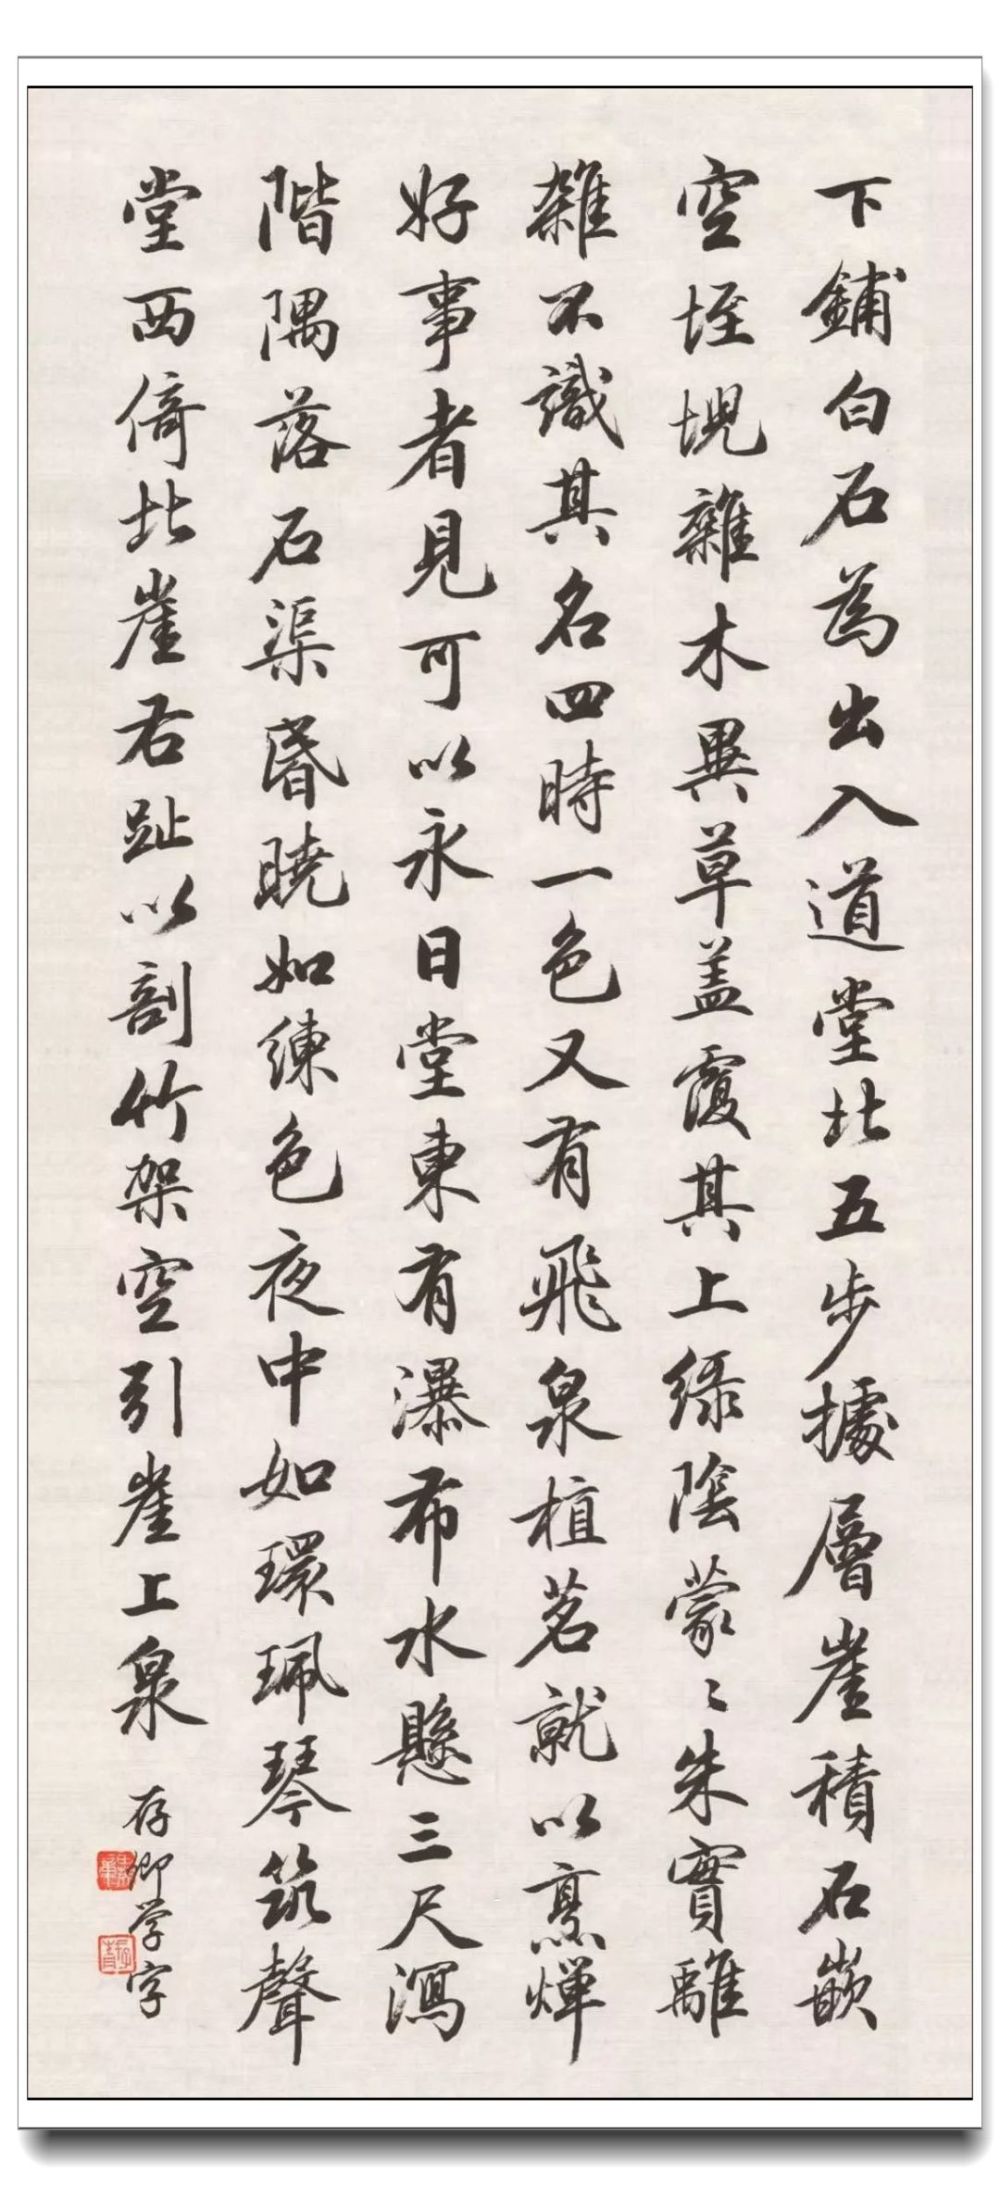 下鋪白石為出入道堂北五步據層崖積石嵌
空垤堄雜木異草盖覆其上綠陰蒙〻朱實離
離不識其名四時一色又有飛泉植茗就以烹燀
好事者見可以永日堂東有瀑布水懸三尺瀉
階隅落石渠昬曉如練色夜中如環珮琴筑聲
堂西倚北崖右趾以剖竹架空引崖上泉
存卿学字